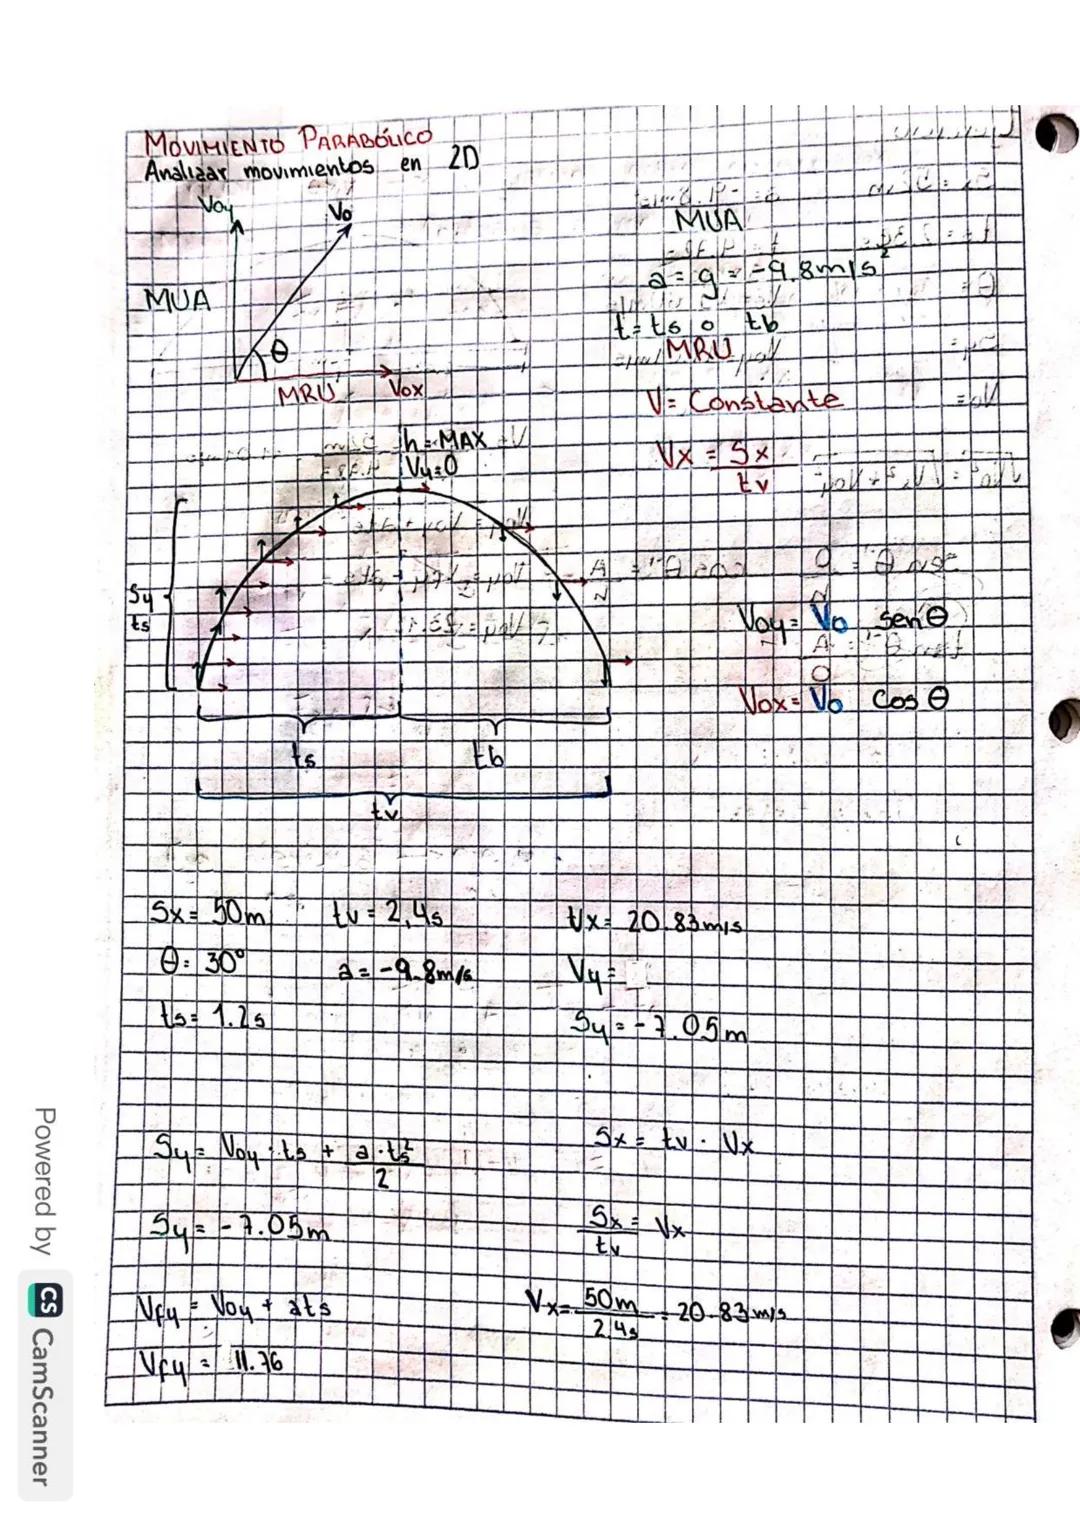 MOVIMIENTO PARABÓLICO
Analizar movimientos en 2D
Voy Vo
MUA
θ
MRU Vox
MUA
a = g = -9.8m/s²
t = ts o tb
MRU
V = Constante
Vx = Sx / tv
h = MAX
Vy = 0
Sy
ts
Voy = Vo sen θ
Vox = Vo cos θ
ts tb
tv
Sx = 50m tv = 2,4s Vx = 20.83m/s
θ = 30° a = -9.8m/s Vy =
ts = 1.2s Sy = -7.05m
Sy = Voy · ts + a·ts² / 2 Sx = tv · Vx
Sy = -7.05m Sx / tv = Vx
Vfy = Voy + ats Vx = 50m / 2,4s = 20.83m/s
Vfy = 11.76
Powered by CS CamScanner